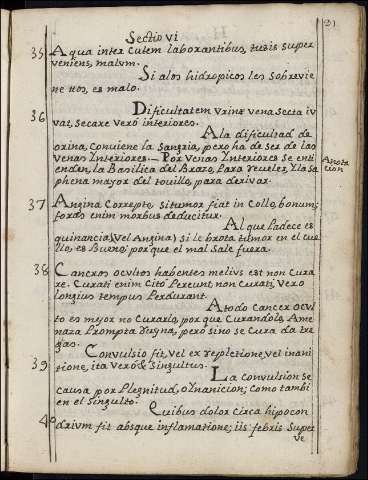 21
Sectio vi
35 Aqua inter cutem laborantibus, tusis super
veniens, malum.
Si alos hidropicos les sobrevie
ne tos, es malo.
36 Dificultatem Vrinæ vena secta iu
vat, secare vero interiores.
Ala dificultad de
orina, conviene la sangria, pero ha de ser de las
venas Ynteriores. Por Venas Ynteriores se enti
enden, la Basilica del Brazo, Para reveler, Yla sa
phena mayor del tovillo, para derivar.
Anota
cion
37 Angina Correpto, si tumor fiat in Collo, bonum;
foras enim morbus deducitur.
Al que Padece es
quinancia, (vel Angina) si le brota tumor en el cue
llo, es Bueno, por que el mal sale fuera.
38 Cancros ocultos habentes melius est non Cura
re. Curati enim cito Pereunt, non curati, Vero
longius tempus Perdurant.
Atodo Cancer ocul
to es mejor no Curarlo, por que Curandole, Ame
naza Prompta ruyna, pero sino se Cura da tre
guas.
39 Convulsio fit, vel ex repletione, vel inani
tione, ita Vero & Singultus.
La convulsion se
causa por Plegnitud, o Ynanicion; como tambi
en el Singulto.
40 Quibus dolor circa hipocon
drium fit absque inflamatione; iis febris super
ve